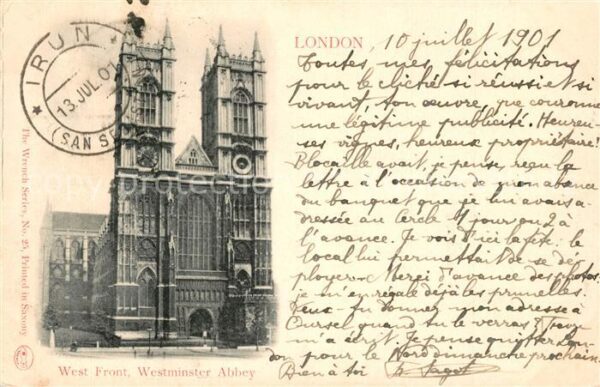 LONDON, 10 juillet 1901
Toutes mes félicitations
pour le cliché si réussi et si
vivant, ton œuvre, que couronne
une légitime publicité. Heureu-
ses vignes, heureux propriétaire!
Blocaille avait, je pense, reçu la
lettre à l'occasion de mon absence
du banquet que je lui avais a-
dressée au Cercle 1 jour ou 2 à
l'avance. Je vois d'ici la fête: le
local lui permettant de se dé-
ployer. Merci d'avance des photos,
je m'en régale déjà les prunelles.
Peux-tu donner mon adresse à
Cursel, quand tu le verras?
m'a écrit. Je pense quitter Lon-
don pour le Nord dimanche prochain.
Bien à toi
IRUN
13 JUL 01
(SAN SE
The Wrench Series, No. 25, Printed in Saxony
West Front, Westminster Abbey